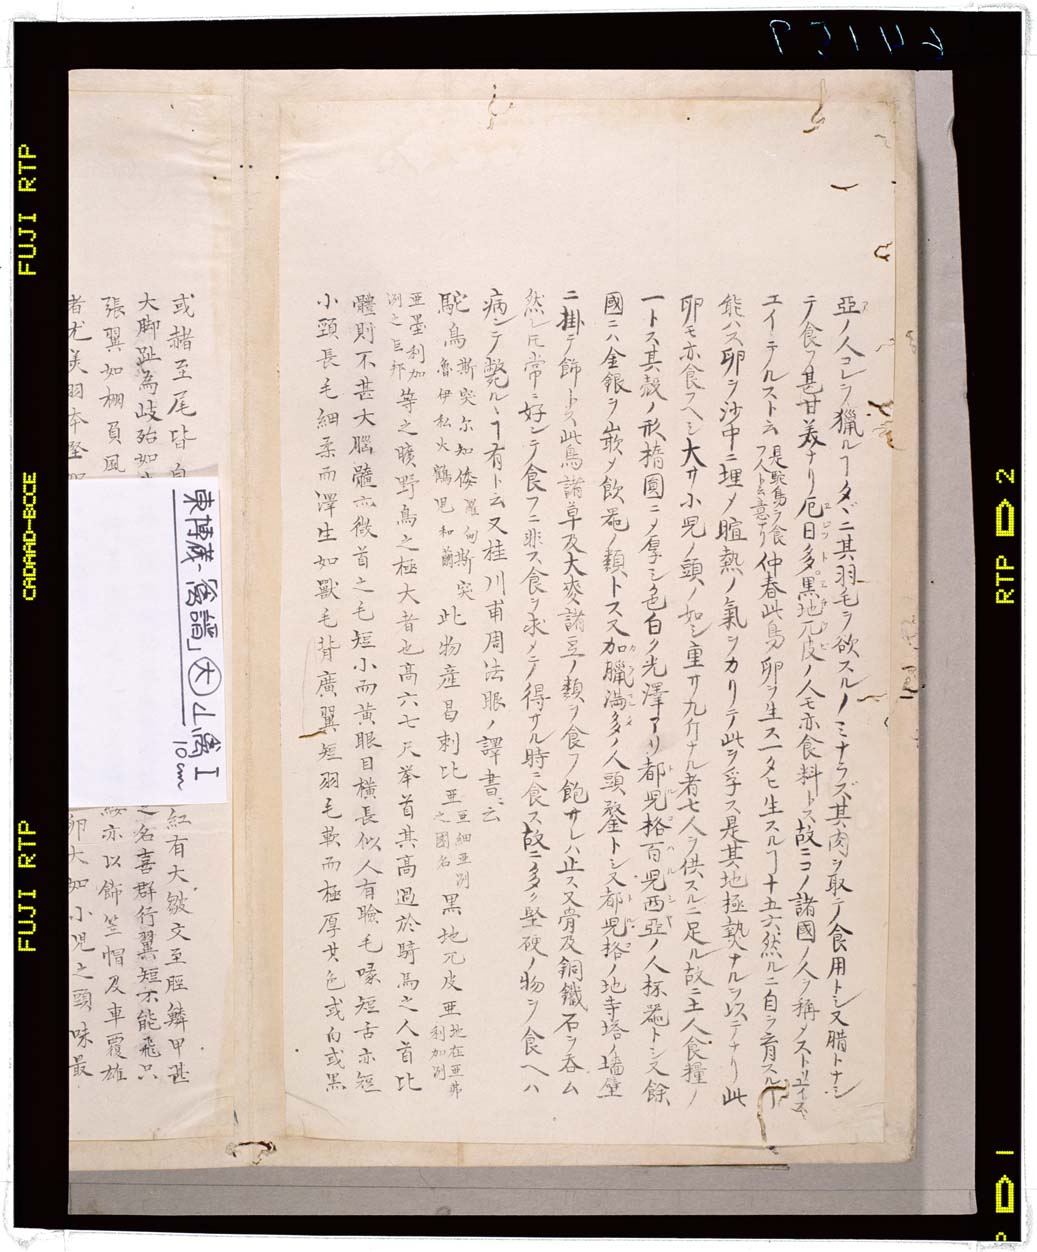 亞ノ人コレヲ獵ルヿタヾニ其羽毛ヲ欲スルノミナラズ其肉ヲ取テ食用トシ又腊トナシ
テ食フ甚甘美ナリ厄日多黒地兀皮ノ人モ亦食料トス故ニコノ諸國ノ人ヲ稱メストリュイス
エイテルスト云 是駝鳥ヲ食フ人ト云意ナリ 仲春此鳥卵ヲ生ス一タヒ生スルヿ十五六然ルニ自ラ育スルヿ
能ハス卵ヲ沙中ニ埋メ暄熱ノ氣ヲカリテ此ヲ孚ス是其地極熱ナルヲ以テナリ此
卵モ亦食フヘシ大サ小児ノ頭ノ如シ重サ九斤ナル者七人ヲ供スルニ足ル故ニ土人食糧ノ
一トス其殻ノ形橢圓ニメ厚シ色白ク光澤アリ都児格百児西亞ノ人杯器トシ又餘
國ニハ金銀ヲ嵌メ飲器ノ類トス又加臘満多ノ人頭鍪トシ又都児格ノ地寺塔ノ墻壁
ニ掛テ飾トス此鳥諸草及大麥諸豆ノ類ヲ食フノ飽サレハ止ス又骨及銅鐵石ヲ呑ム
然レ𪜈常ニ好シテ食フニ非ス食ヲ求メテ得サル時ニ食ス故ニ多ク堅硬ノ物ヲ食ヘハ
病シテ斃ルヽヿ有ト云又桂川甫周法眼ノ譯書ニ云
駝鳥 斯突尓加倭羅甸斯突魯伊私火鶴思和蘭 此物産昌刺比亜 亜細亜洲之國名 黒地兀皮亜 地在亜弗利加洲
亜墨利加洲之巨邦 等之曠野鳥之極大者也髙六七尺挙首其髙過於騎馬之人首比
體則不甚大腦髓亦微首之毛短小而黄眼目横長似人有瞼毛喙短舌亦短
小頸長毛細柔而澤生如獸毛背廣翼短羽毛軟而極厚其色或白或黒
或赭至尾皆白
紅有大皺文至脛鱗甲甚
大脚趾為岐殆如
之名喜群行翼短不能飛只
張翼如棚負風
亦以飾笠帽及車覆雄
者尤美羽本堅
卵大如小児之頭味最
東博蔵「禽譜」大 山禽 I
10cm
FUJI RTP
CADAAD-BCCE
FUJI RTP
RTP D 2
D 1